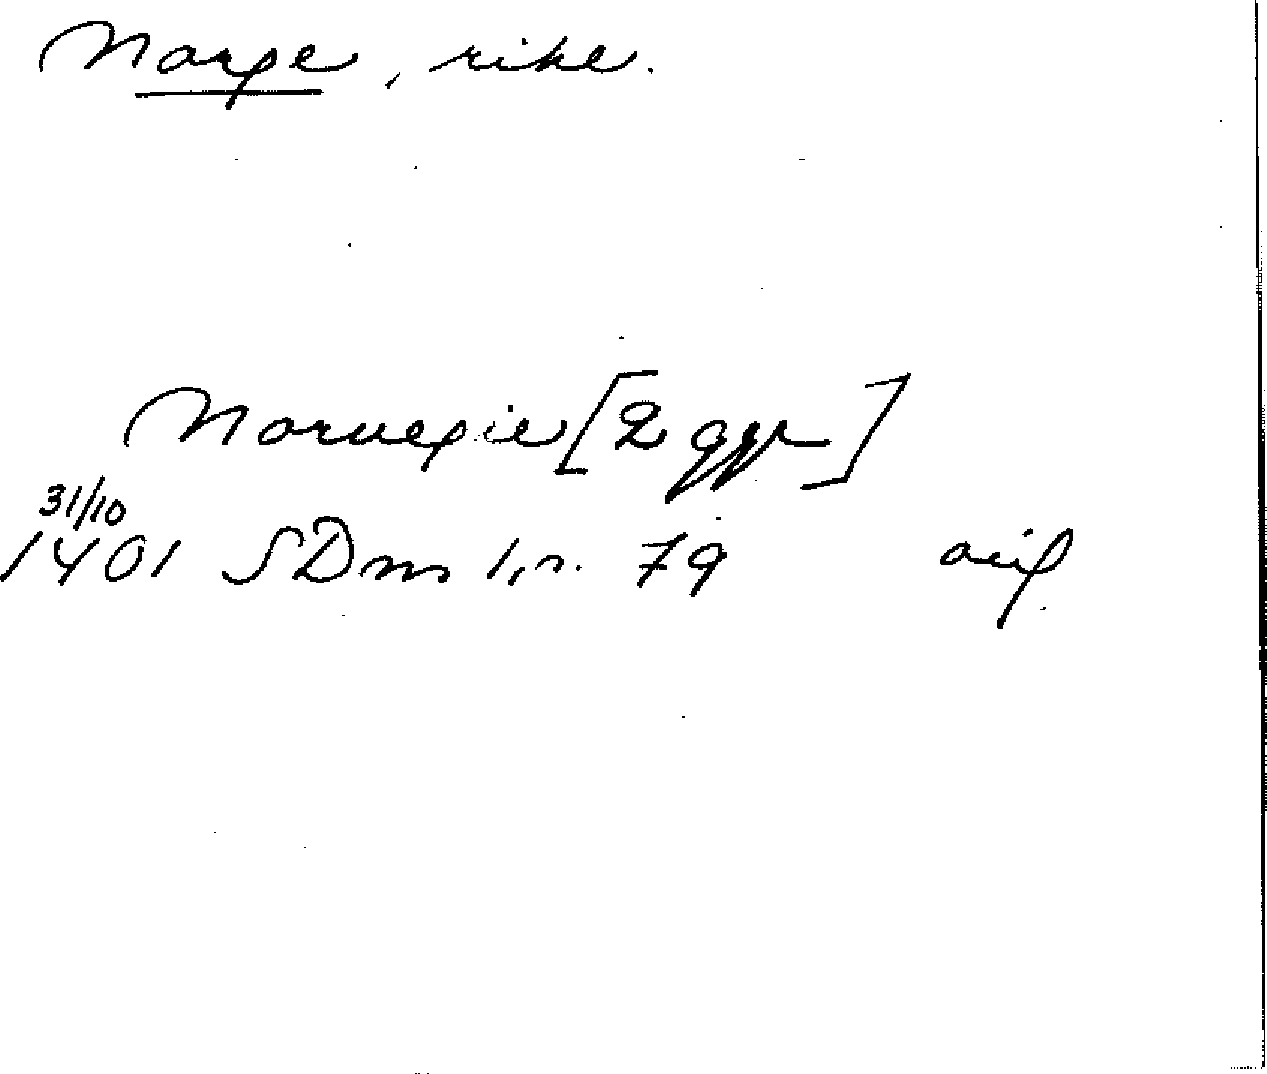 Norge, rike.
Noruegie [2 ggr]
31/10
1401 SDm 1, n. 79 avif